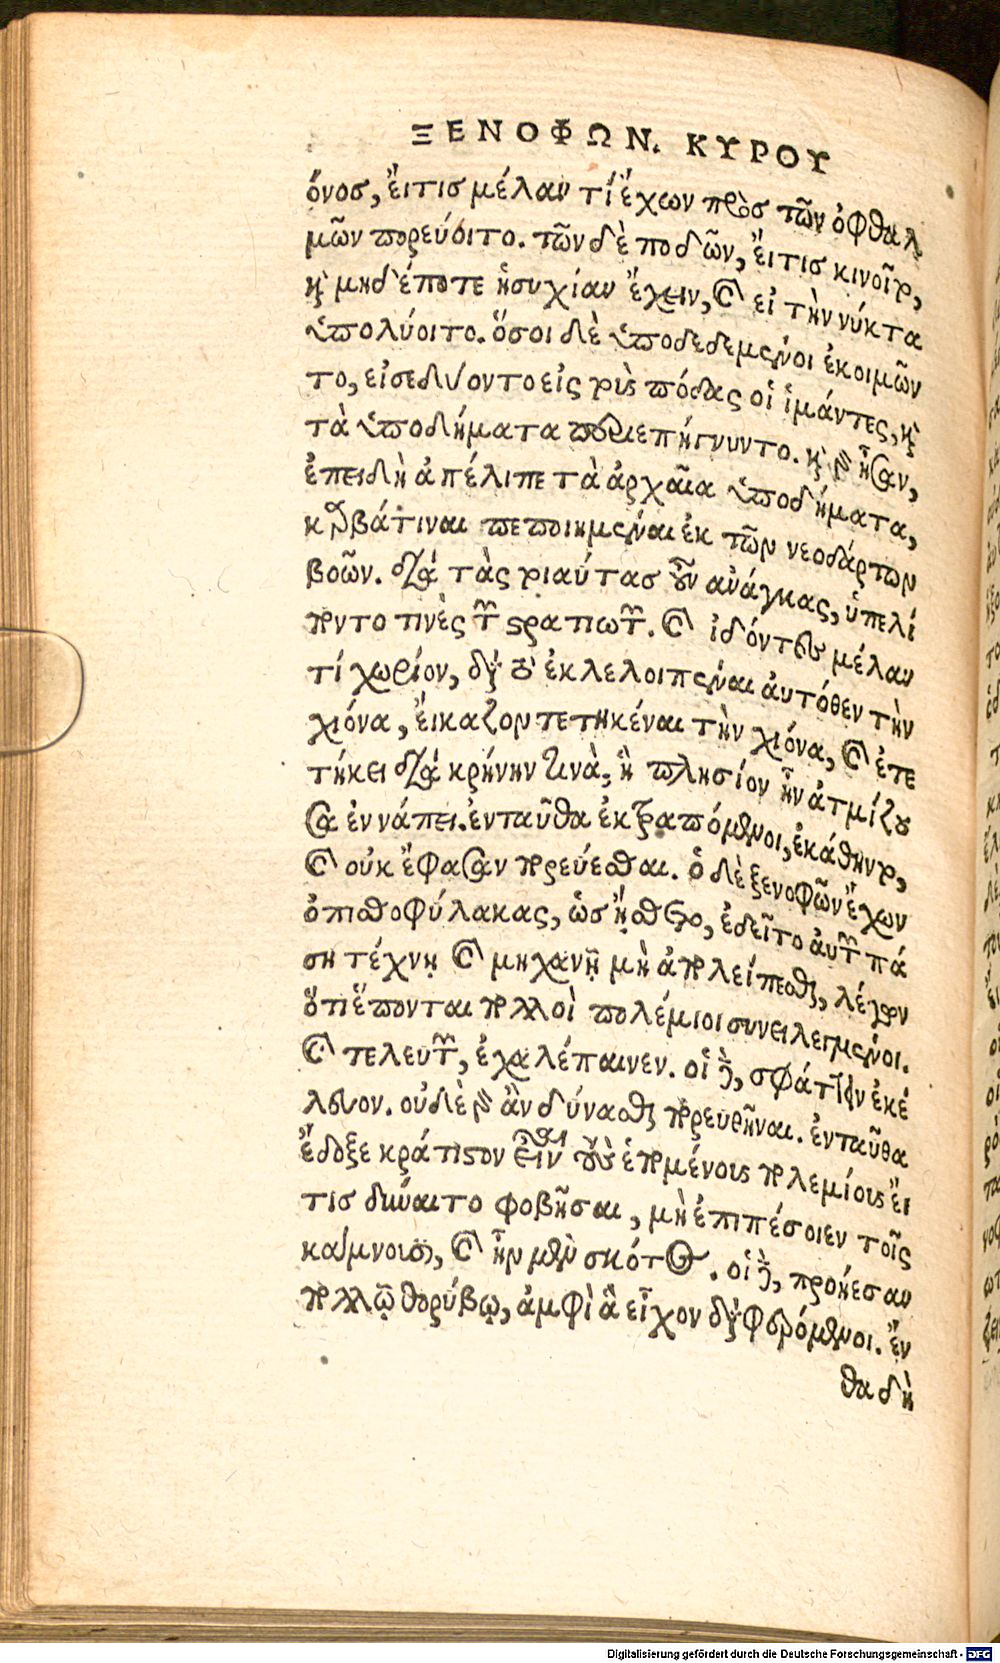 ΞΕΝΟΦΩΝ. ΚΥΡΟΥ
όνοσ, ἔιτισ μέλαν τί ἔχων πρὸσ τῶν ὀφθαλ
μῶν πορεύοιτο. τῶν δὲ ποδῶν, ἔιτισ κινοῖτο,
κὶ μηδέποτε ἡσυχίαν ἔχειν, καὶ εἰ τὴν νύκτα
ὑπολύοιτο. ὅσοι δὲ ὑποδεδεμένοι ἐκοιμῶν
το, εἰσεδύοντο εἰς τοὺς πόδας οἱ ἱμάντες, κὶ
τὰ ὑποδήματα περιεπήγνυντο. κὶ γὰρ ἦσαν,
ἐπειδὴ ἀπέλιπε τὰ ἀρχαῖα ὑποδήματα,
καρβάτιναι πεποιημέναι ἐκ τῶν νεοδάρτων
βοῶν. διὰ τὰς τοιαύτασ οὖν ἀνάγκας, ὑπελί
ποντο τινὲς τῶν στρατιωτῶν. καὶ ἰδόντες μέλαν
τί χωρίον, διὰ τὸ ἐκλελοιπέναι αὐτόθεν τὴν
χιόνα, ἔικαζον τετηκέναι τὴν χιόνα, καὶ ἐτε
τήκει διὰ κρήνην τινὰ, ἣ πλησίον ἦν ἀτμίζου
σα ἐν νάπει. ἐνταῦθα ἐκτραπόμενοι, ἐκάθηντο,
καὶ οὐκ ἔφασαν πορεύεσθαι. ὁ δὲ ξενοφῶν ἔχων
ὀπισθοφύλακας, ὡσ ᾔσθετο, ἐδεῖτο ἀυτῶν πά
ση τέχνῃ καὶ μηχανῇ μὴ ἀπολείπεσθαι, λέγων
ὅτι ἕπονται πολλοὶ πολέμιοι συνειλεγμένοι.
καὶ τελευτῶν, ἐχαλέπαινεν. οἱ δὲ, σφάττειν ἐκέ
λευον. οὐδὲ γὰρ ἂν δύνασθαι πορευθῆναι. ἐνταῦθα
ἔδοξε κράτιστον εἶναι τοὺς ἑπομένους πολεμίους ἔι
τισ δύναιτο φοβῆσαι, μὴ ἐπιπέσοιεν τοῖς
κάμνουσι, καὶ ἦν μὲν σκότος. οἱ δὲ, προήεσαν
πολλῷ θορύβῳ, ἀμφὶ ἃ εἶχον διαφερόμενοι. ἔν
θα δὴ
Digitalisierung gefördert durch die Deutsche Forschungsgemeinschaft - DFG